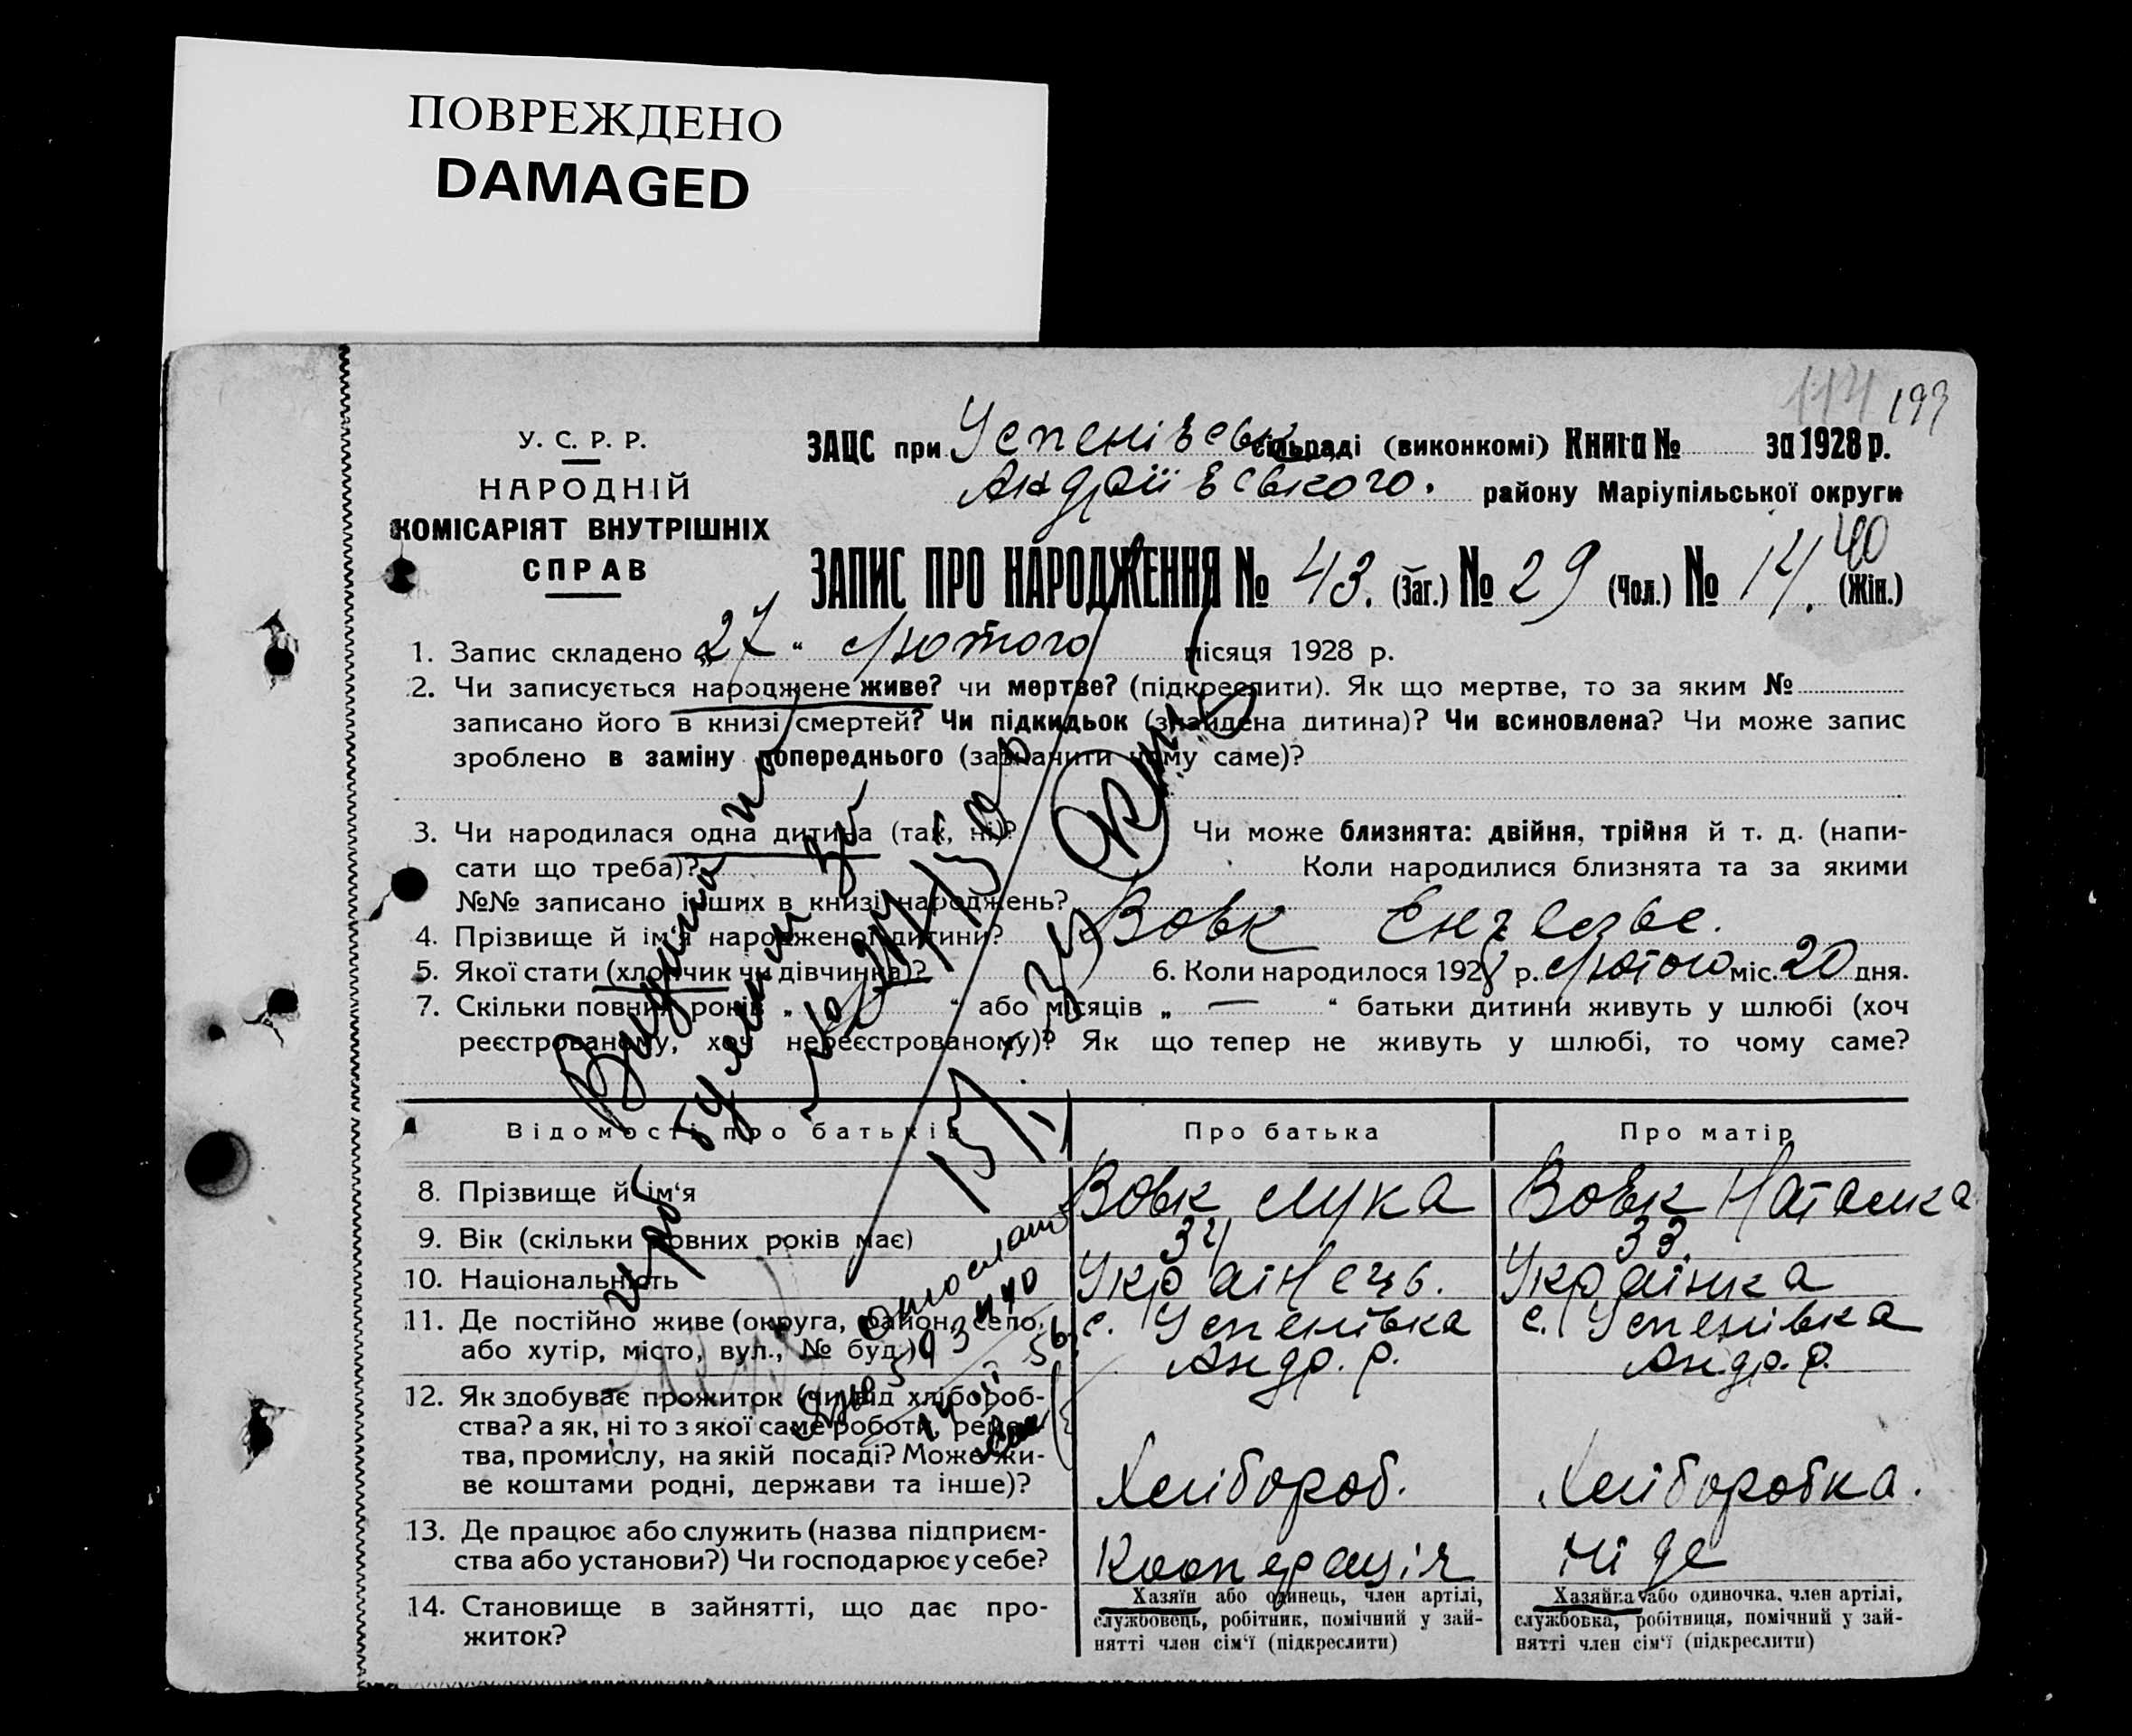 ПОВРЕЖДЕНО
DAMAGED
114 199
У. С. Р. Р.
НАРОДНІЙ
КОМІСАРІЯТ ВНУТРІШНІХ
СПРАВ
ЗАЦС при Успенівськ сільраді (виконкомі) Книга № за 1928 р.
Андріївського. району Маріупільської округи
40
ЗАПИС ПРО НАРОДЖЕННЯ № 43. (Заг.) № 29 (Чол.) № 14. (Жін.)
1. Запис складено „27“ лютого місяця 1928 р.
2. Чи записується народжене живе? чи мертве? (підкреслити). Як що мертве, то за яким №
записано його в книзі смертей? Чи підкидьок (знайдена дитина)? Чи всиновлена? Чи може запис
зроблено в заміну попереднього (зазначити чому саме)?
3. Чи народилася одна дитина (так, ні)? Чи може близнята: двійня, трійня й т. д. (напи-
сати що треба)? Коли народилися близнята та за якими
№№ записано інших в книзі народжень?
4. Прізвище й ім'я народженої дитини? Вовк
5. Якої стати (хлопчик чи дівчинка)? 6. Коли народилося 1928 р. лютого міс. 20 дня.
7. Скільки повних років „ “ або місяців „ — “ батьки дитини живуть у шлюбі (хоч
реєстрованому, хоч нереєстрованому)? Як що тепер не живуть у шлюбі, то чому саме?
Відомості про батьків Про батька Про матір
8. Прізвище й ім'я Вовк Лука Вовк Наталка
9. Вік (скільки повних років має) 34 33.
10. Національність Українець. Українка
11. Де постійно живе (округа, район, село, с. Успенівка с. Успенівка
або хутір, місто, вул., № буд.) Андр. р. Андр. р.
12. Як здобуває прожиток (чи від хлібороб-
ства? а як, ні то з якої саме роботи, ремес-
тва, промислу, на якій посаді? Може жи-
ве коштами родні, держави та інше)? Хлібороб. Хліборобка.
13. Де працює або служить (назва підприєм-
ства або установи?) Чи господарює у себе? Кооперація Ніде
14. Становище в зайнятті, що дає про-
житок?
Хазяїн або одинець, член артілі,
службовець, робітник, помічний у зай-
нятті член сім'ї (підкреслити)
Хазяйка або одиночка, член артілі,
службовка, робітниця, помічний у зай-
нятті член сім'ї (підкреслити)